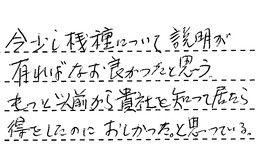 今少し機種について説明が
有ればなお良かったと思う。
もっと以前から貴社を知って居たら
得をしたのにおしかった。と思っている。